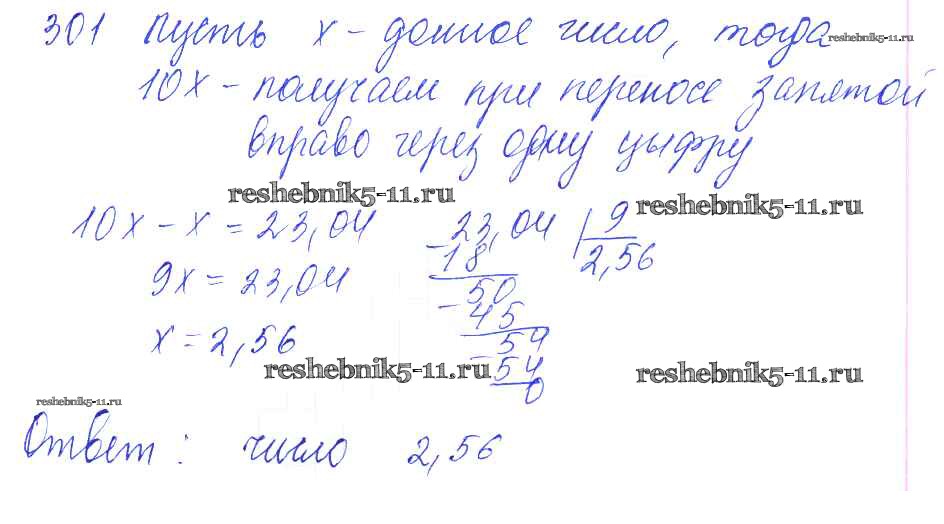 301 Пусть х - данное число, тогда
reshebnik5-11.ru
10х - получаем при переносе запятой
вправо через одну цыфру
reshebnik5-11.ru
reshebnik5-11.ru
10х - х = 23,04
9х = 23,04
х = 2,56
- 23,04 | 9
18 2,56
- 50
45
- 54
54
0
reshebnik5-11.ru
reshebnik5-11.ru
reshebnik5-11.ru
Ответ: число 2,56